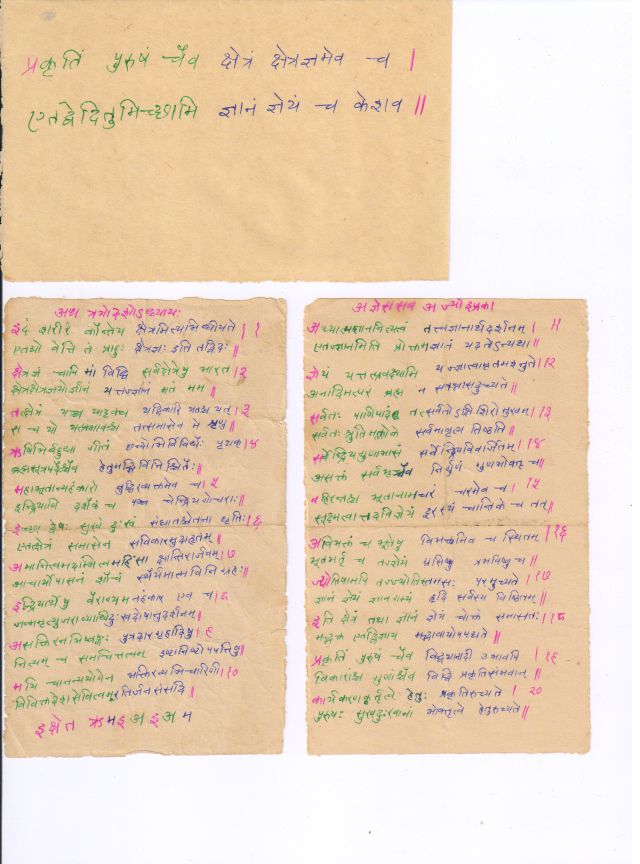 प्रकृतिं पुरुषं चैव क्षेत्रं क्षेत्रज्ञमेव च |
एतद्वेदितुमिच्छामि ज्ञानं ज्ञेयं च केशव ||
अथ त्रयोदशोऽध्यायः
इदं शरीरं कौन्तेय क्षेत्रमित्यभिधीयते | १
एतद्यो वेत्ति तं प्राहुः क्षेत्रज्ञः इति तद्विदः ||
क्षेत्रज्ञं चापि मां विद्धि सर्वक्षेत्रेषु भारत | २
क्षेत्रक्षेत्रज्ञयोर्ज्ञानं यत्तज्ज्ञानं मतं मम ||
तत्क्षेत्रं यच्च यादृक्च यद्विकारि यतश्च यत् | ३
स च यो यत्प्रभावश्च तत्समासेन मे शृणु ||
ऋषिभिर्बहुधा गीतं छन्दोभिर्विविधैः पृथक् | ४
ब्रह्मसूत्रपदैश्चैव हेतुमद्भिर्विनिश्चितैः ||
महाभूतान्यहंकारो बुद्धिरव्यक्तमेव च | ५
इन्द्रियाणि दशैकं च पञ्च चेन्द्रियगोचराः ||
इच्छा द्वेषः सुखं दुःखं संघातश्चेतना धृतिः | ६
एतत्क्षेत्रं समासेन सविकारमुदाहृतम् ||
अमानित्वमदम्भित्वमहिंसा क्षान्तिरार्जवम् | ७
आचार्योपासनं शौचं स्थैर्यमात्मविनिग्रहः ||
इन्द्रियार्थेषु वैराग्यमनहंकार एव च | ८
जन्ममृत्युजराव्याधिदुःखदोषानुदर्शनम् ||
असक्तिरनभिष्वङ्गः पुत्रदारगृहादिषु | ९
नित्यम् च समचित्तत्वम् इष्टानिष्टोपपत्तिषु ||
मयि चानन्ययोगेन भक्तिरव्यभिचारिणी | १०
विविक्तदेशसेवित्वमरतिर्जनसंसदि ||
इ क्षे त ऋ म इ अ इ अ म
अ ज्ञे स स ब अ ज्यो इ प्र का
अध्यात्मज्ञाननित्यत्वं तत्त्वज्ञानार्थदर्शनम् | ११
एतज्ज्ञानमिति प्रोक्तमज्ञानं यदतोऽन्यथा ||
ज्ञेयं यत्तत्प्रवक्ष्यामि यज्ज्ञात्वामृतमश्नुते | १२
अनादिमत्परं ब्रह्म न सत्तन्नासदुच्यते ||
सर्वतः पाणिपादं तत्सर्वतोऽक्षिशिरोमुखम् | १३
सर्वतः श्रुतिमल्लोके सर्वमावृत्य तिष्ठति ||
सर्वेन्द्रियगुणाभासं सर्वेन्द्रियविवर्जितम् | १४
असक्तं सर्वभृच्चैव निर्गुणं गुणभोक्तृ च ||
बहिरन्तश्च भूतानामचरं चरमेव च | १५
सूक्ष्मत्वात्तदविज्ञेयं दूरस्थं चान्तिके च तत् ||
अविभक्तं च भूतेषु विभक्तमिव च स्थितम् | १६
भूतभर्तृ च तज्ज्ञेयं ग्रसिष्णु प्रभविष्णु च ||
ज्योतिषामपि तज्ज्योतिस्तमसः परमुच्यते | १७
ज्ञानं ज्ञेयं ज्ञानगम्यं हृदि सर्वस्य विष्ठितम् ||
इति क्षेत्रं तथा ज्ञानं ज्ञेयं चोक्तं समासतः | १८
मद्भक्त एतद्विज्ञाय मद्भावायोपपद्यते ||
प्रकृतिं पुरुषं चैव विद्ध्यनादी उभावपि | १९
विकारांश्च गुणांश्चैव विद्धि प्रकृतिसंभवान् ||
कार्यकरणकर्तृत्वे हेतुः प्रकृतिरुच्यते | २०
पुरुषः सुखदुःखानां भोक्तृत्वे हेतुरुच्यते ||